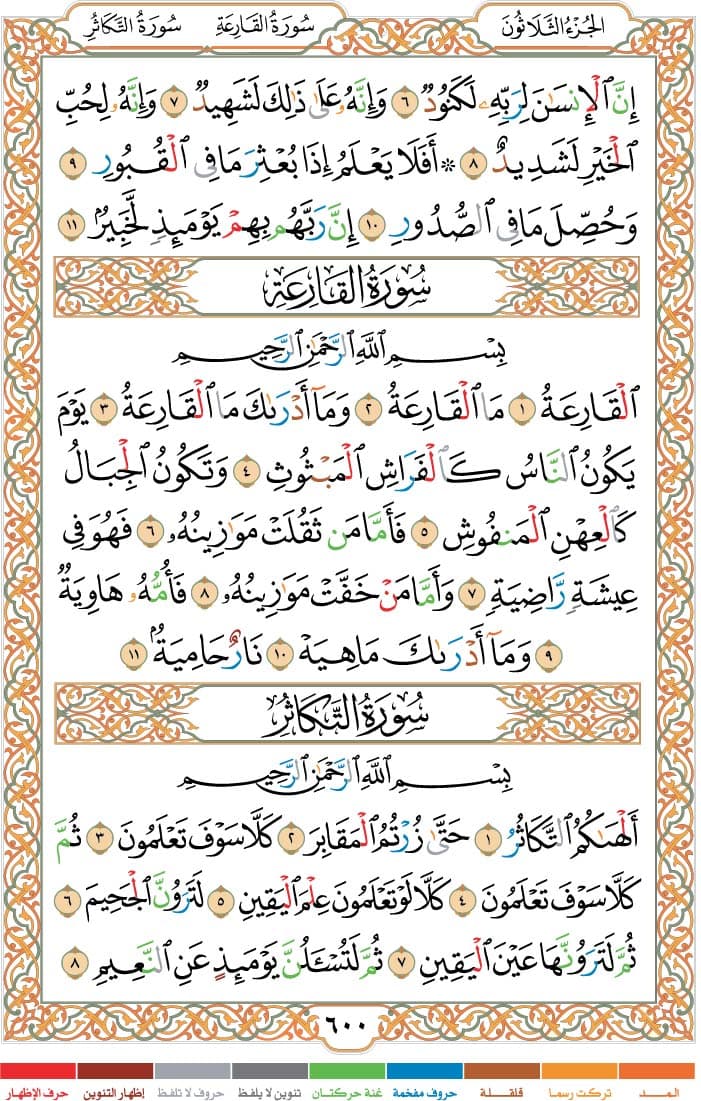 الجزء الثلاثون سورة القارعة سورة التكاثر
إِنَّ ٱلْإِنسَٰنَ لِرَبِّهِۦ لَكَنُودٌ ٦ وَإِنَّهُۥ عَلَىٰ ذَٰلِكَ لَشَهِيدٌ ٧ وَإِنَّهُۥ لِحُبِّ
ٱلْخَيْرِ لَشَدِيدٌ ٨ ۞ أَفَلَا يَعْلَمُ إِذَا بُعْثِرَ مَا فِى ٱلْقُبُورِ ٩
وَحُصِّلَ مَا فِى ٱلصُّدُورِ ١٠ إِنَّ رَبَّهُم بِهِمْ يَوْمَئِذٍ لَّخَبِيرٌۢ ١١
سُورَةُ القَارِعَةِ
بِسْمِ ٱللَّهِ ٱلرَّحْمَٰنِ ٱلرَّحِيمِ
ٱلْقَارِعَةُ ١ مَا ٱلْقَارِعَةُ ٢ وَمَآ أَدْرَىٰكَ مَا ٱلْقَارِعَةُ ٣ يَوْمَ
يَكُونُ ٱلنَّاسُ كَٱلْفَرَاشِ ٱلْمَبْثُوثِ ٤ وَتَكُونُ ٱلْجِبَالُ
كَٱلْعِهْنِ ٱلْمَنفُوشِ ٥ فَأَمَّا مَن ثَقُلَتْ مَوَٰزِينُهُۥ ٦ فَهُوَ فِى
عِيشَةٍ رَّاضِيَةٍ ٧ وَأَمَّا مَنْ خَفَّتْ مَوَٰزِينُهُۥ ٨ فَأُمُّهُۥ هَاوِيَةٌ
٩ وَمَآ أَدْرَىٰكَ مَا هِيَهْ ١٠ نَارٌ حَامِيَةٌۢ ١١
سُورَةُ التَّكَاثُرِ
بِسْمِ ٱللَّهِ ٱلرَّحْمَٰنِ ٱلرَّحِيمِ
أَلْهَىٰكُمُ ٱلتَّكَاثُرُ ١ حَتَّىٰ زُرْتُمُ ٱلْمَقَابِرَ ٢ كَلَّا سَوْفَ تَعْلَمُونَ ٣ ثُمَّ
كَلَّا سَوْفَ تَعْلَمُونَ ٤ كَلَّا لَوْ تَعْلَمُونَ عِلْمَ ٱلْيَقِينِ ٥ لَتَرَوُنَّ ٱلْجَحِيمَ ٦
ثُمَّ لَتَرَوُنَّهَا عَيْنَ ٱلْيَقِينِ ٧ ثُمَّ لَتُسْـَٔلُنَّ يَوْمَئِذٍ عَنِ ٱلنَّعِيمِ ٨
٦٠٠
المـــد تركت رسما قلقـــلة حروف مفخمة غنة حركتـان تنوين لا يلفظ حروف لا تلفظ إظهار التنوين حرف الإظهار